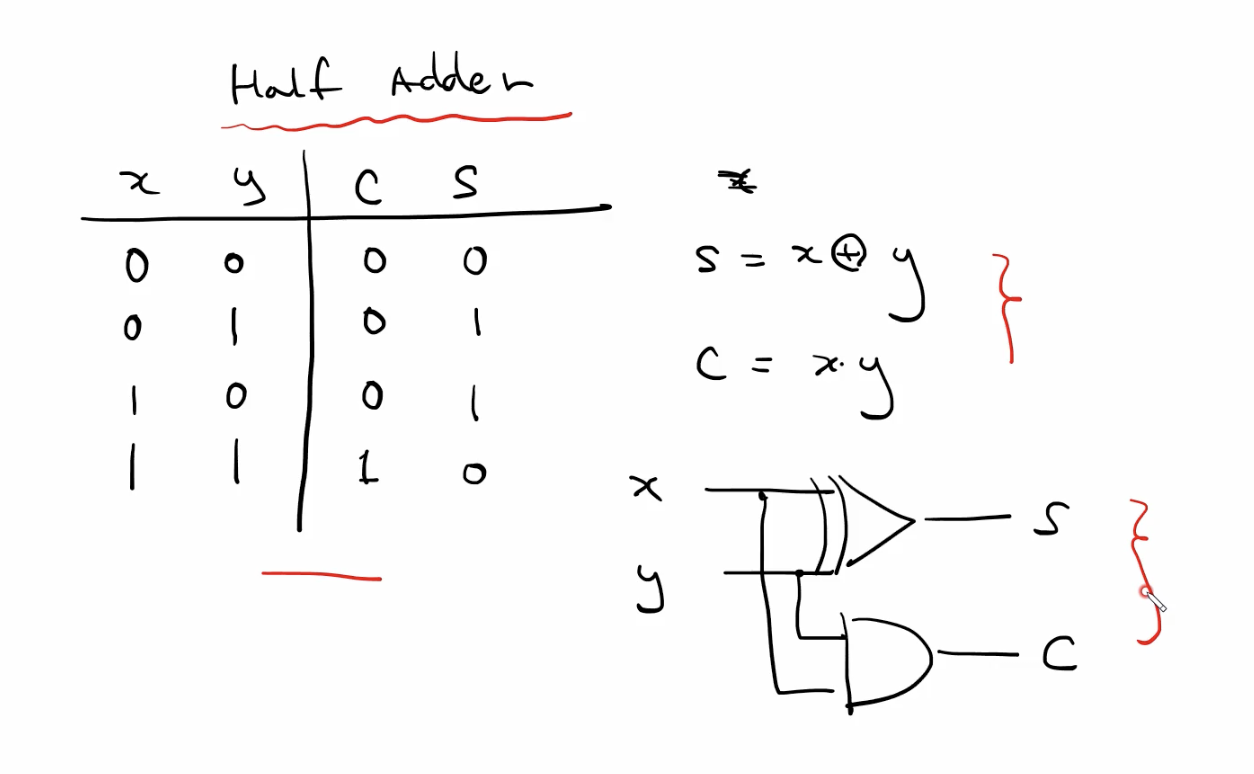 Half Adder
x y C S
0 0 0 0
0 1 0 1
1 0 0 1
1 1 1 0
S = x ⊕ y
C = x · y
x
S
y
C